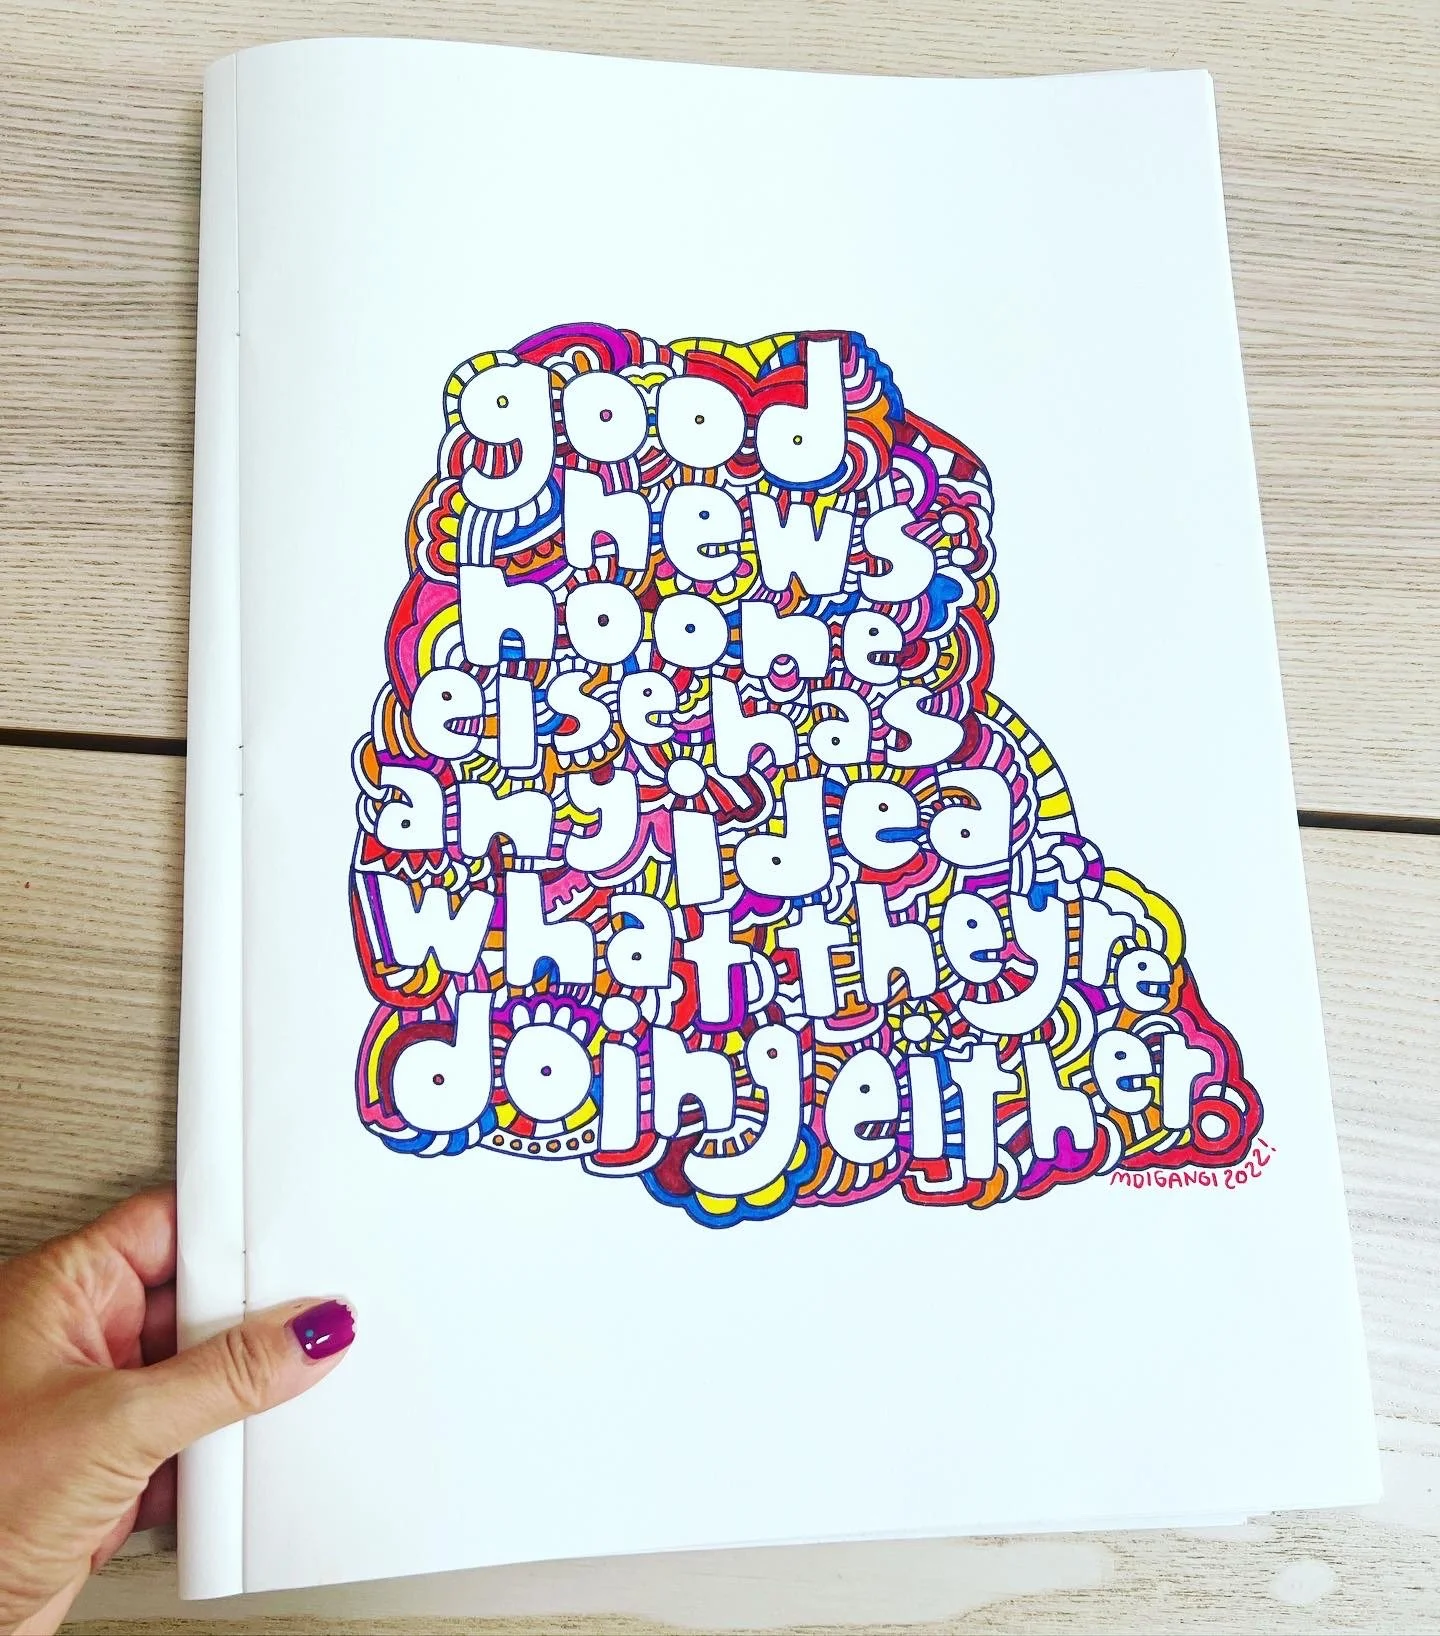 good
news:
no one
else has
any idea
what they're
doing either.
MDIGANGI 2022!